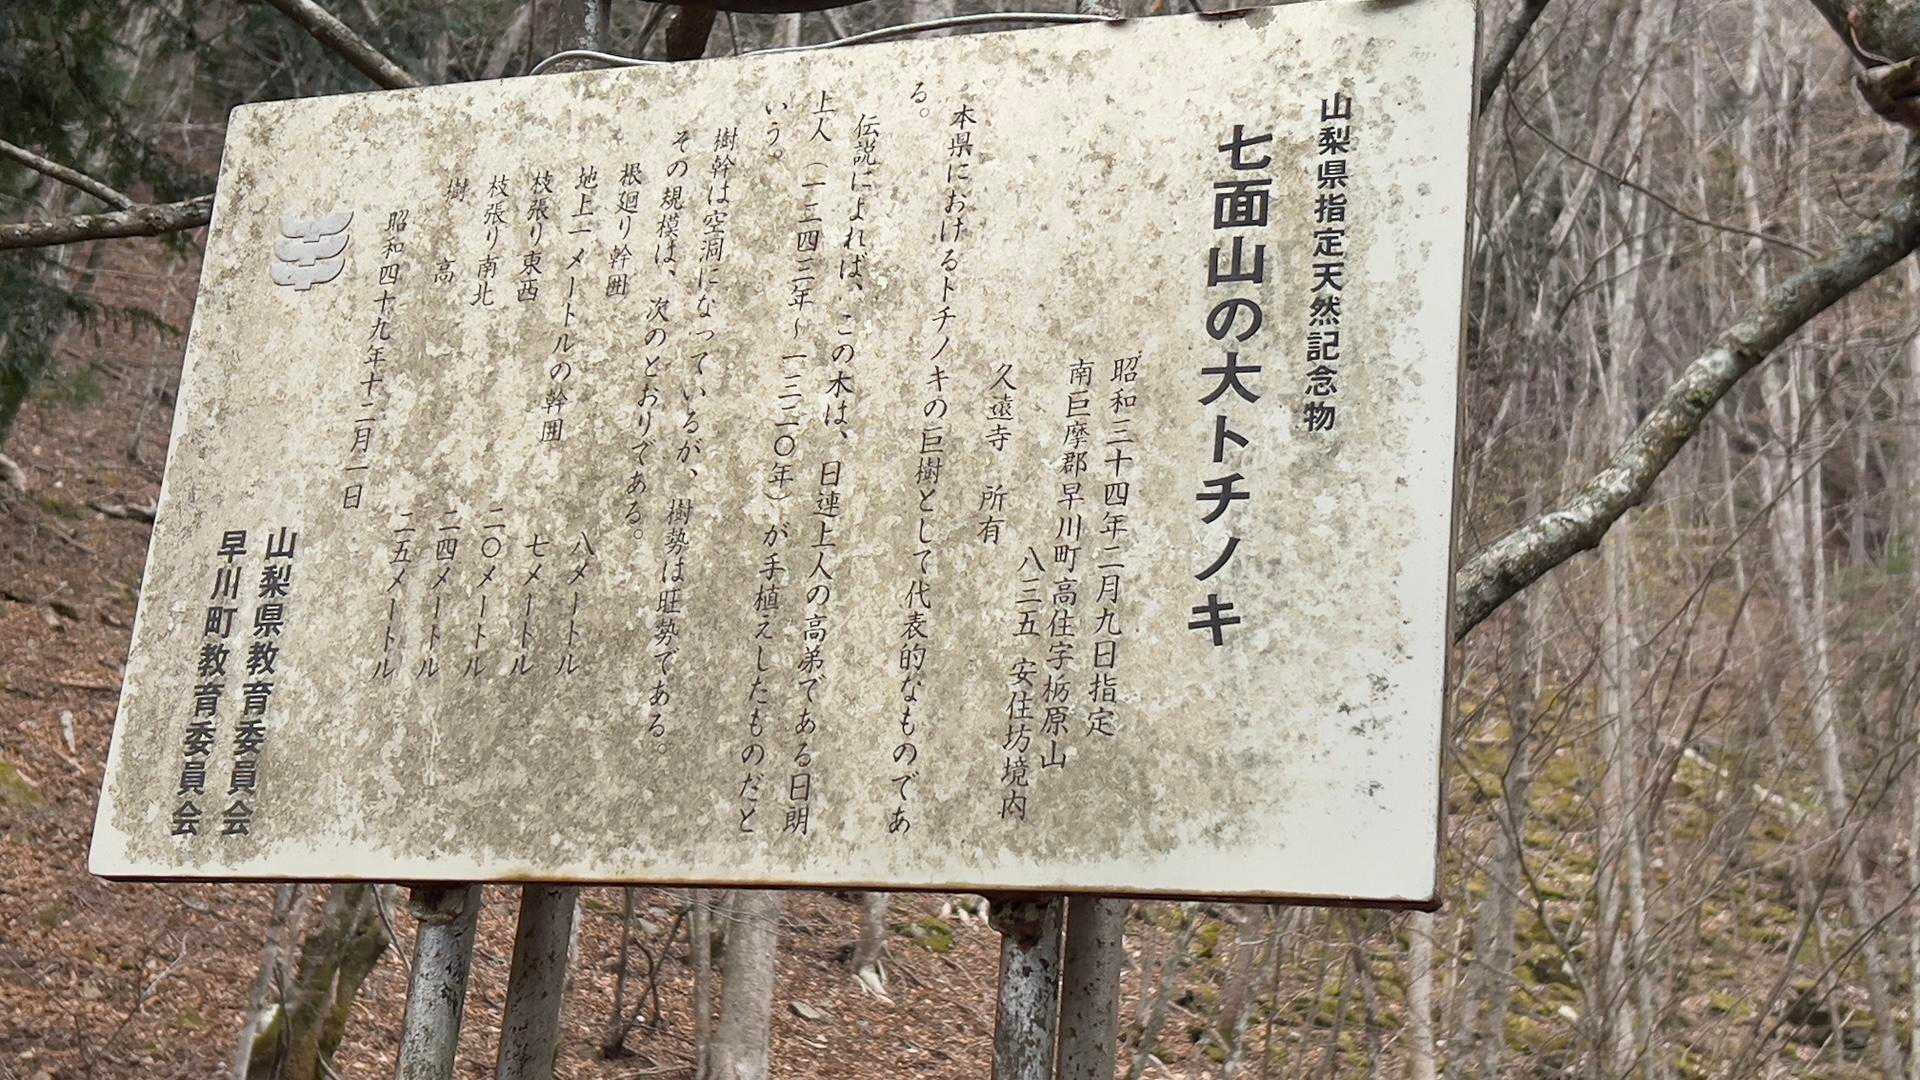 山梨県指定天然記念物
七面山の大トチノキ
昭和三十四年二月九日指定
南巨摩郡早川町高住字栃原山
八三五 安住坊境内
久遠寺 所有
本県におけるトチノキの巨樹として代表的なものであ
る。
伝説によれば、この木は、日連上人の高弟である日朗
上人(一二四三年~一三二〇年)が手植えしたものだと
いう。
樹幹は空洞になっているが、樹勢は旺勢である。
その規模は、次のとおりである。
根廻り幹囲 八メートル
地上一メートルの幹囲 七メートル
枝張り東西 二〇メートル
枝張り南北 二四メートル
樹高 二五メートル
昭和四十九年十二月一日
山梨県教育委員会
早川町教育委員会